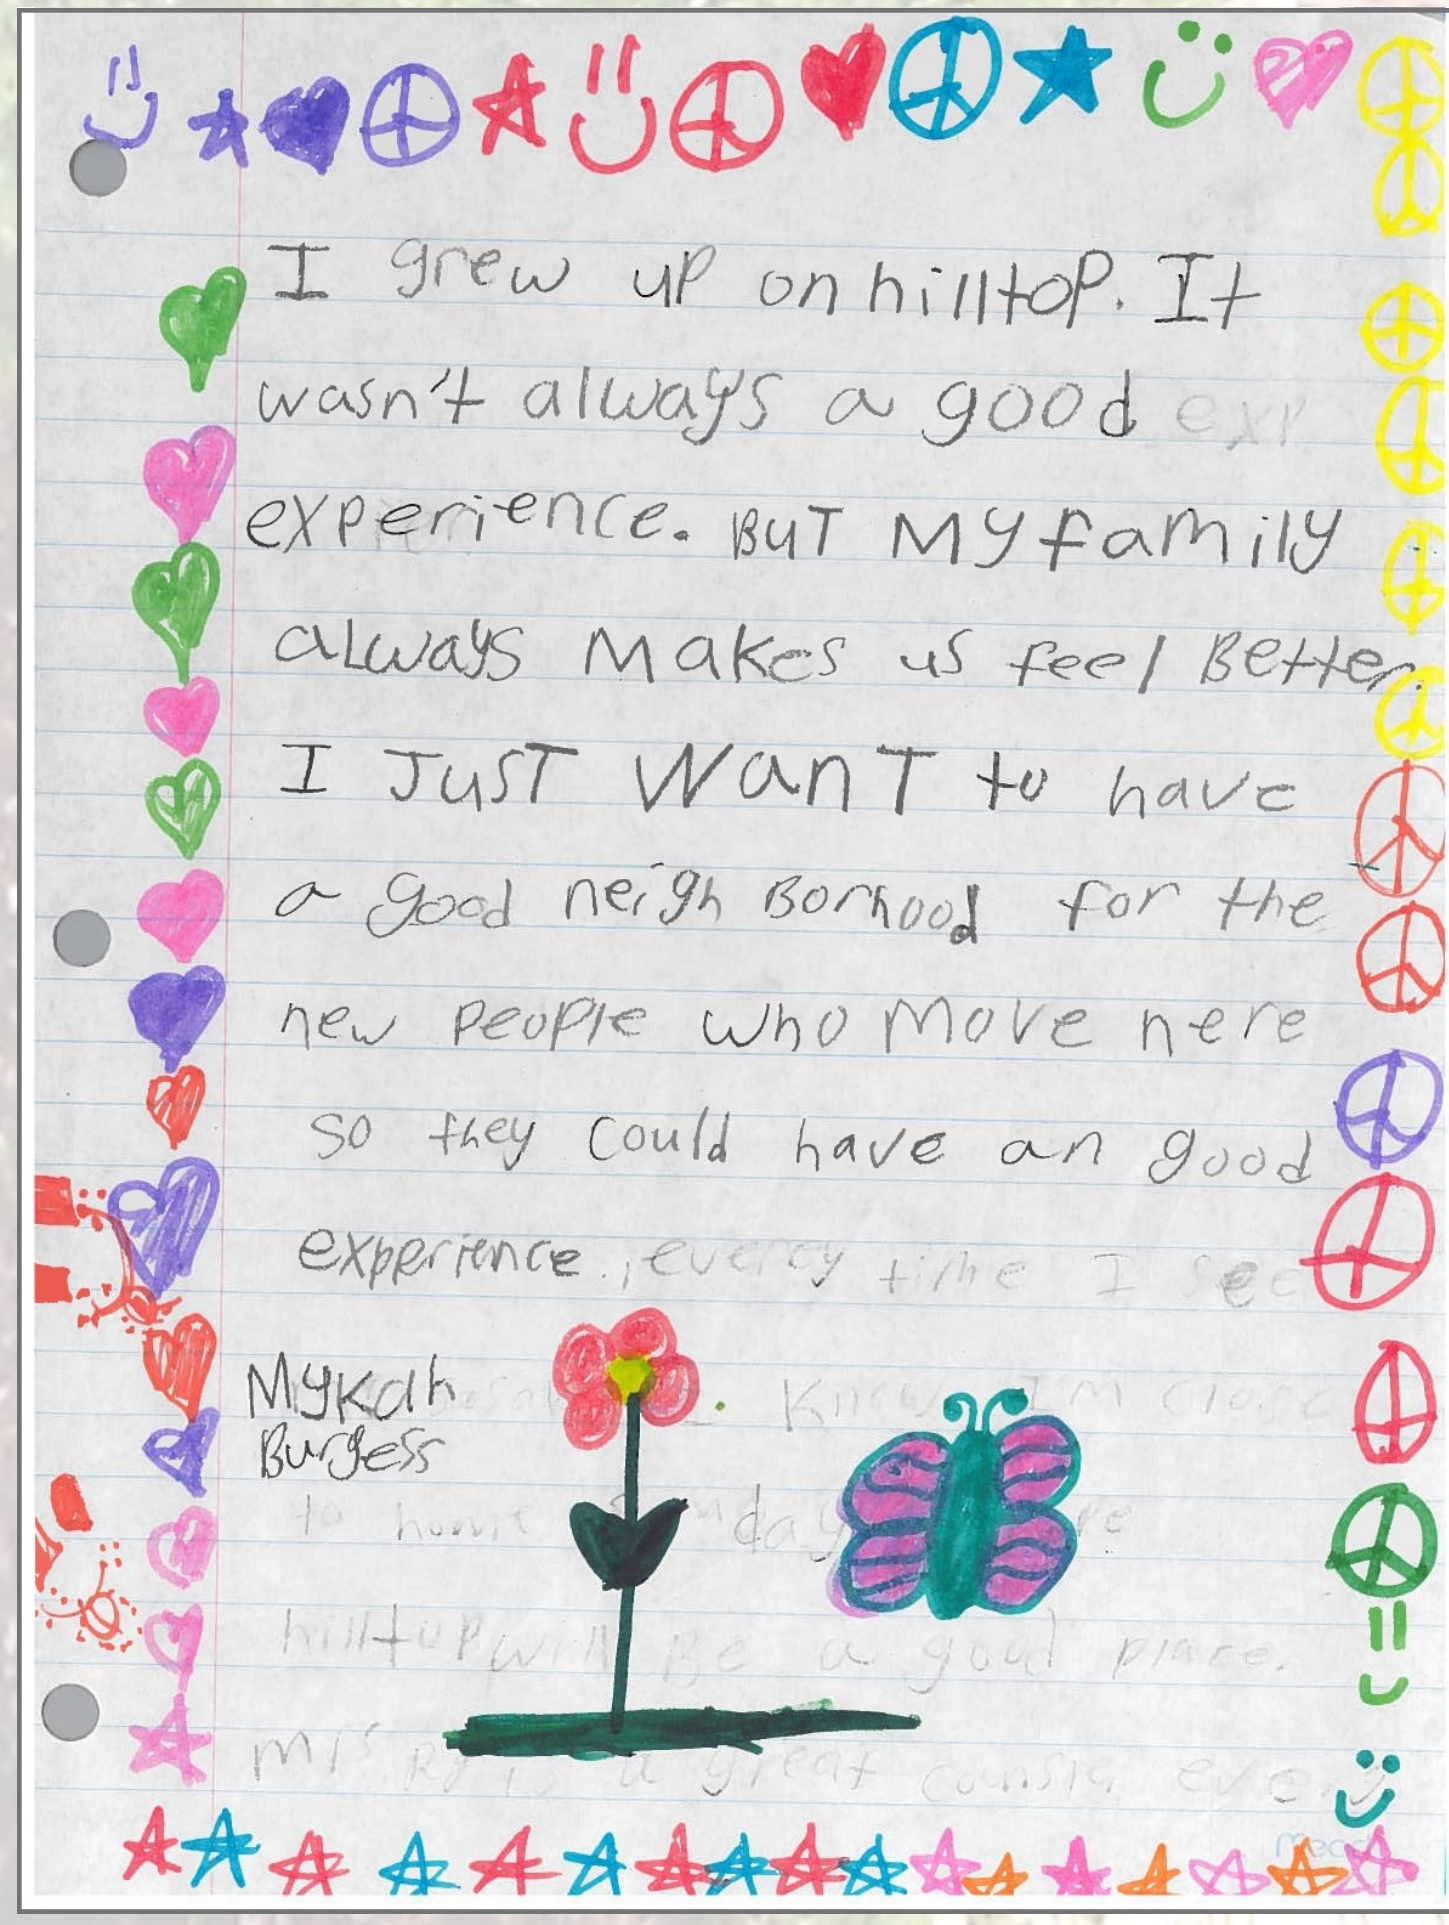 I grew up on hilltop. It
wasn't always a good exp
experience. BUT MY family
always Makes us feel Better.
I JUST WANT to have
a good neighBorhood for the
new people who Move here
so they could have an good
experience. , everey time I see
Mykah
. Know I'm close
Burgess
to home day
hilltop will Be a good place.
is a great